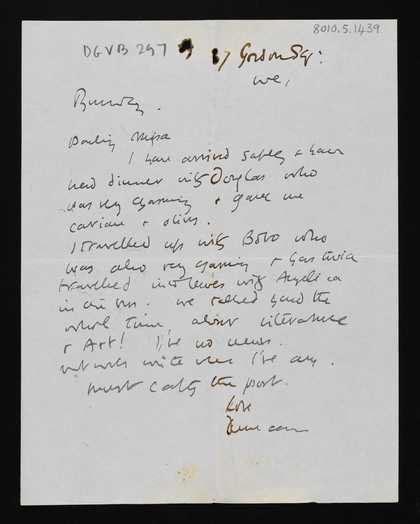 8010.5.1439
DGVB 297
37 Gordon Sq:
WC,
Darling Nessa
I have arrived safely & have
had dinner with Douglas who
was very charming & gave me
caviar & olives.
I travelled up with Bobo who
was also very charming & has twice
travelled into Lewes with Angelica
in the bus. We talked hard the
whole time, about literature
& Art! I've no news.
will write when I've any.
must catch the post.
Love
Duncan